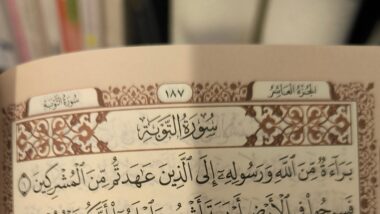 الجزء العاشر
١٨٧
سورة التوبة
سُورَةُ التَّوْبَةِ
بَرَآءَةٌ مِّنَ ٱللَّهِ وَرَسُولِهِۦٓ إِلَى ٱلَّذِينَ عَٰهَدتُّم مِّنَ ٱلْمُشْرِكِينَ ١